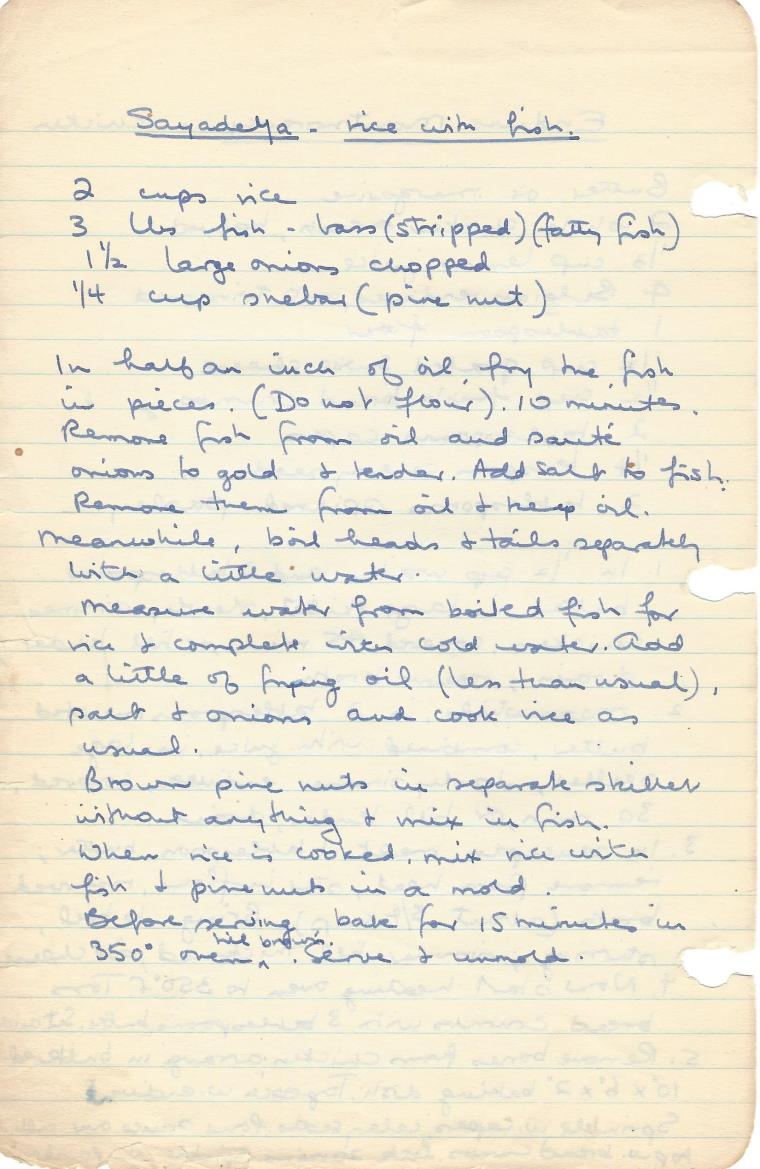 Sayadeya - rice with fish.
2 cups rice
3 lbs fish - bass (stripped) (fatty fish)
1 1/2 large onions chopped
1/4 cup snebar (pine nut)
In half an inch of oil, fry the fish
in pieces. (Do not flour). 10 minutes.
Remove fish from oil and sauté
onions to gold & tender. Add salt to fish.
Remove them from oil & keep oil.
Meanwhile, boil heads & tails separately
with a little water.
Measure water from boiled fish for
rice & complete with cold water. Add
a little of frying oil (less than usual),
salt & onions and cook rice as
usual.
Brown pine nuts in separate skillet
without anything & mix in fish.
When rice is cooked, mix rice with
fish & pine nuts in a mold.
Before serving bake for 15 minutes in
350° oven till brown. Serve & unmold.